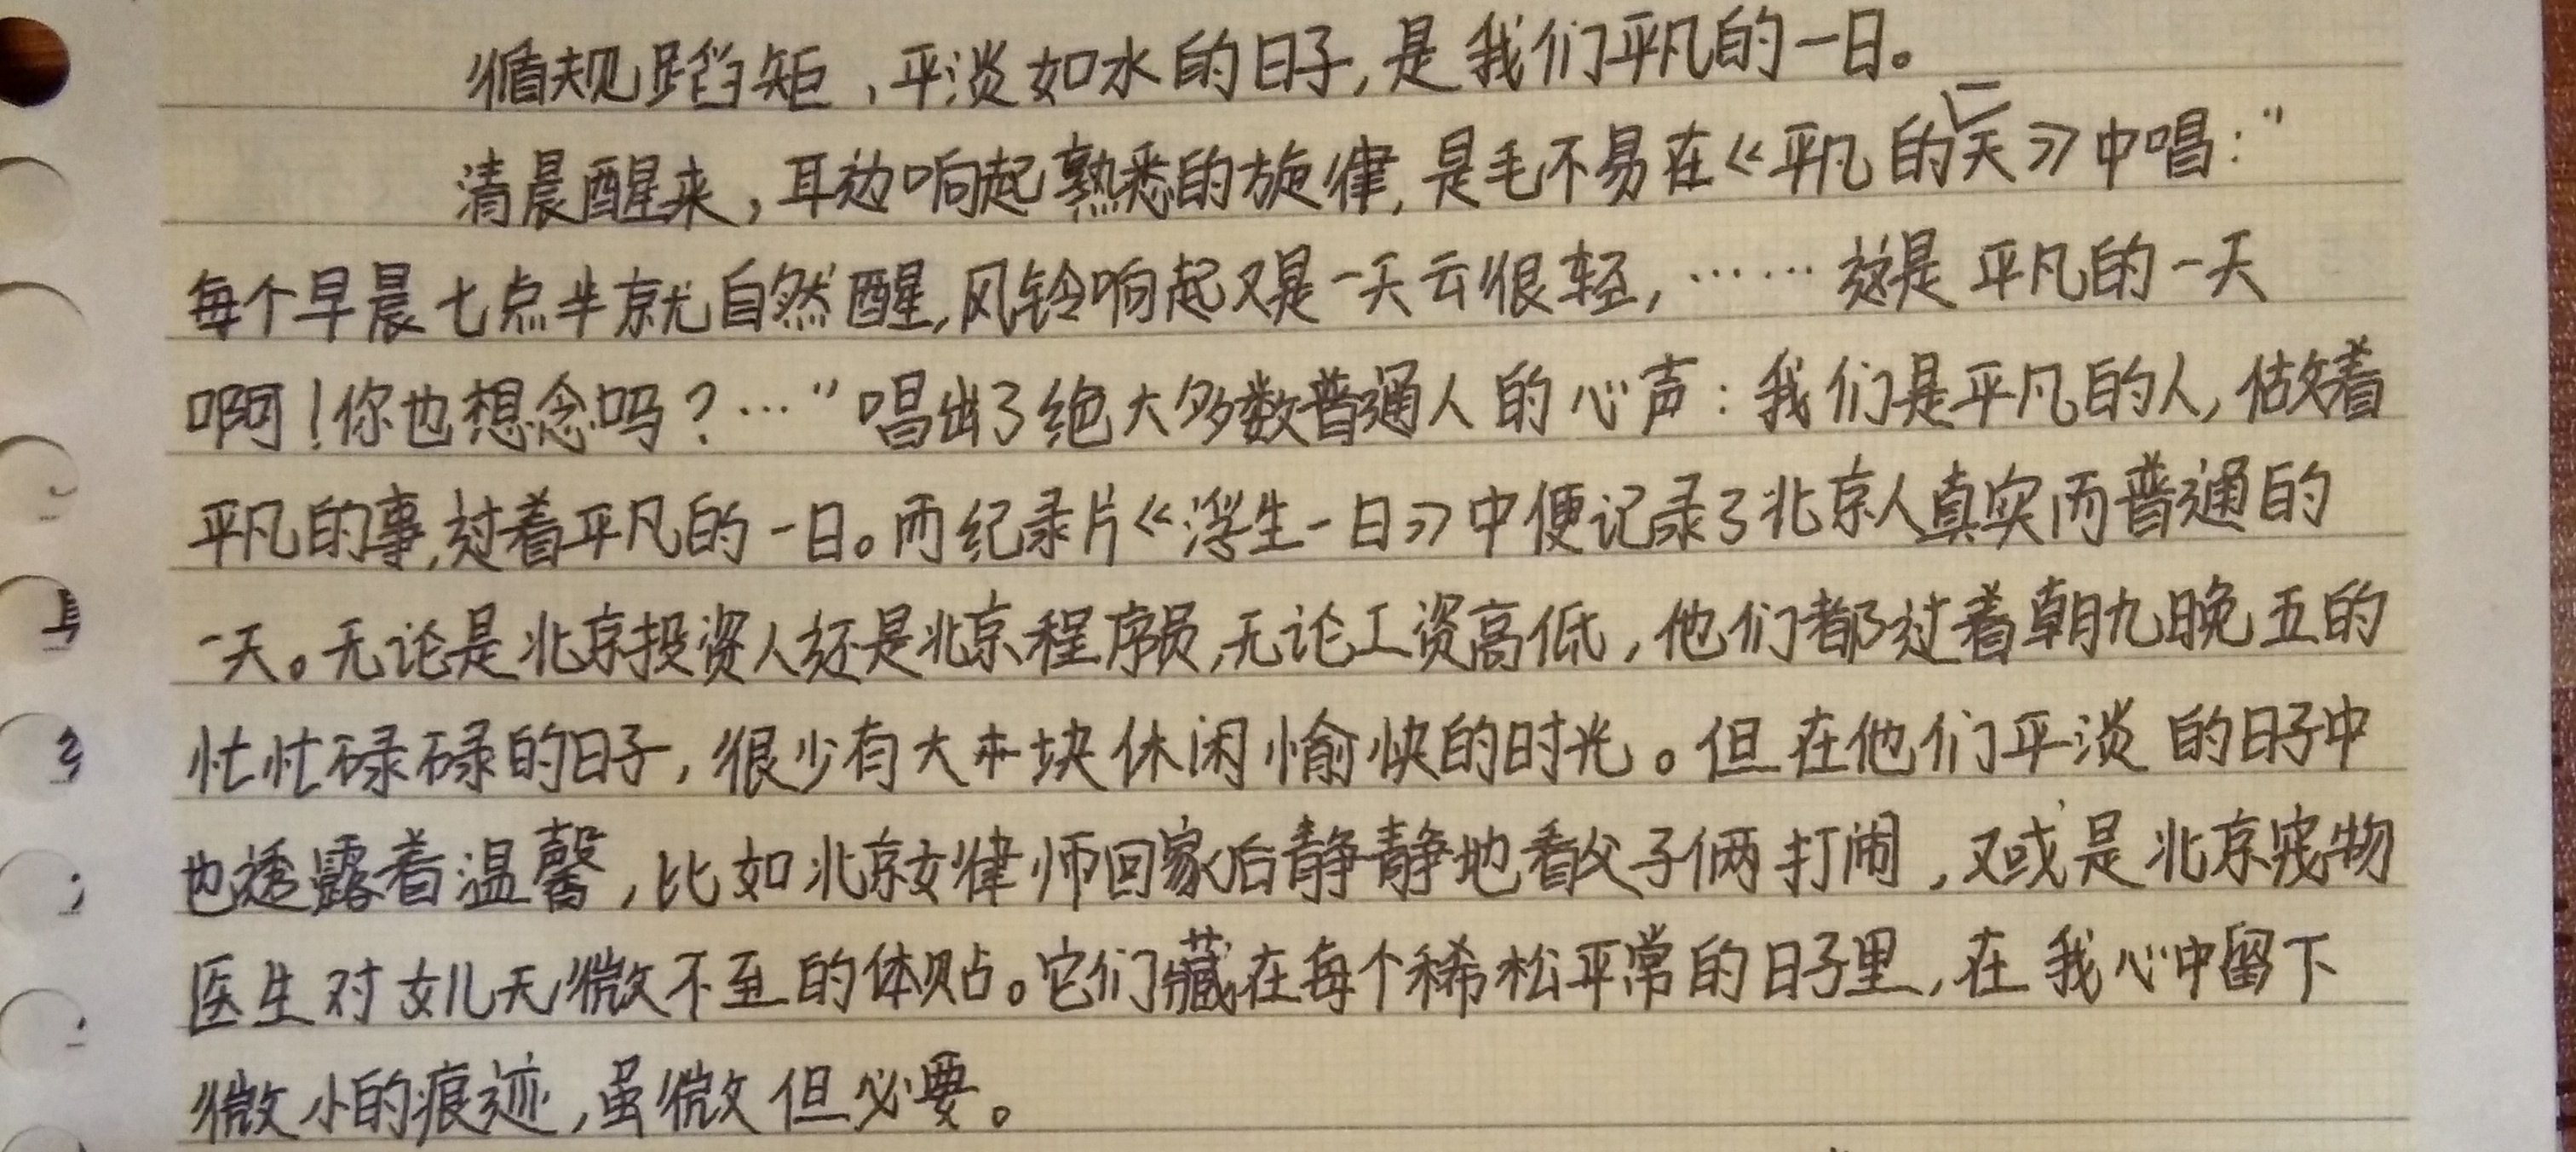 循规蹈矩、平淡如水的日子,是我们平凡的一日。
清晨醒来,耳边响起熟悉的旋律,是毛不易在《平凡的一天》中唱:“
每个早晨七点半就自然醒,风铃响起又是一天云很轻,……这是平凡的一天
啊!你也想念吗?…”唱出了绝大多数普通人的心声:我们是平凡的人,做着
平凡的事,过着平凡的一日。而纪录片《浮生一日》中便记录了北京人真实而普通的
一天。无论是北京投资人还是北京程序员,无论工资高低,他们都过着朝九晚五的
忙忙碌碌的日子,很少有大半块休闲愉快的时光。但在他们平淡的日子中
也透露着温馨,比如北京女律师回家后静静地看父子俩打闹,又或是北京宠物
医生对女儿无微不至的体贴。它们藏在每个稀松平常的日子里,在我心中留下
微小的痕迹,虽微但必要。